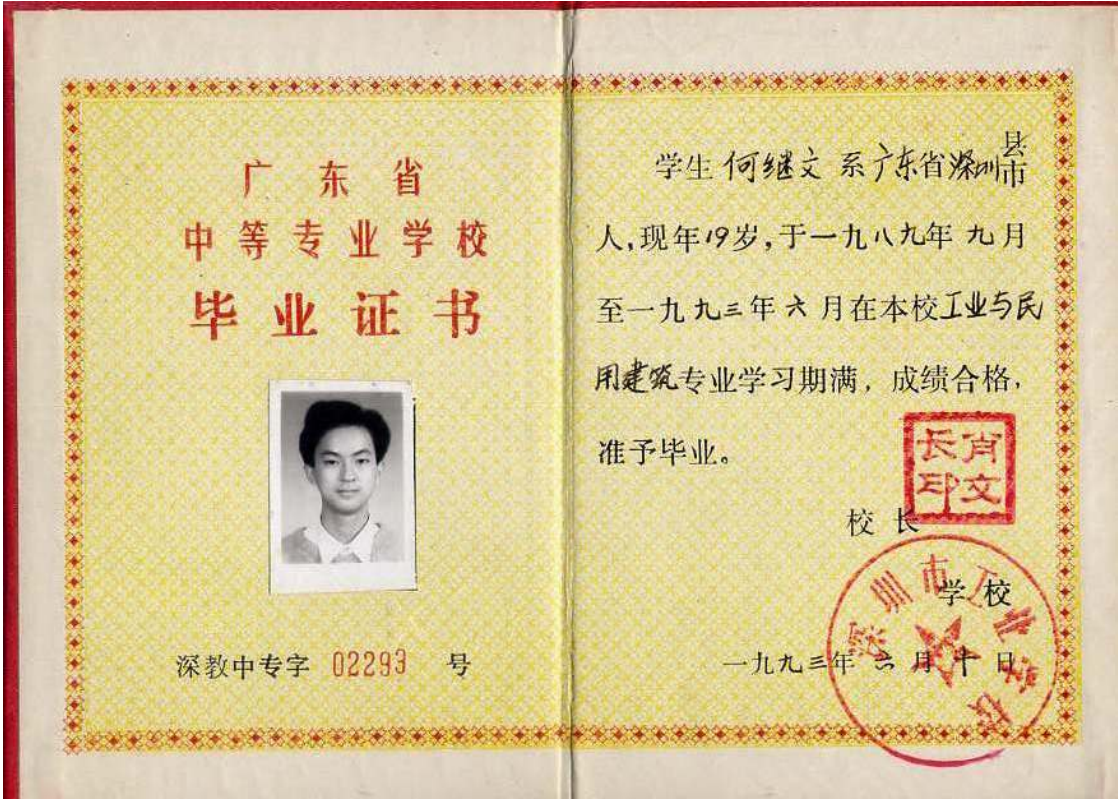 广东省
中等专业学校
毕业证书
深教中专字 02293 号
学生何继文系广东省深圳县市
人,现年19岁,于一九八九年九月
至一九九三年六月在本校工业与民
用建筑专业学习期满,成绩合格,
准予毕业。
肖文
长印
校长
学校
深圳市工业学校
一九九三年六月十日